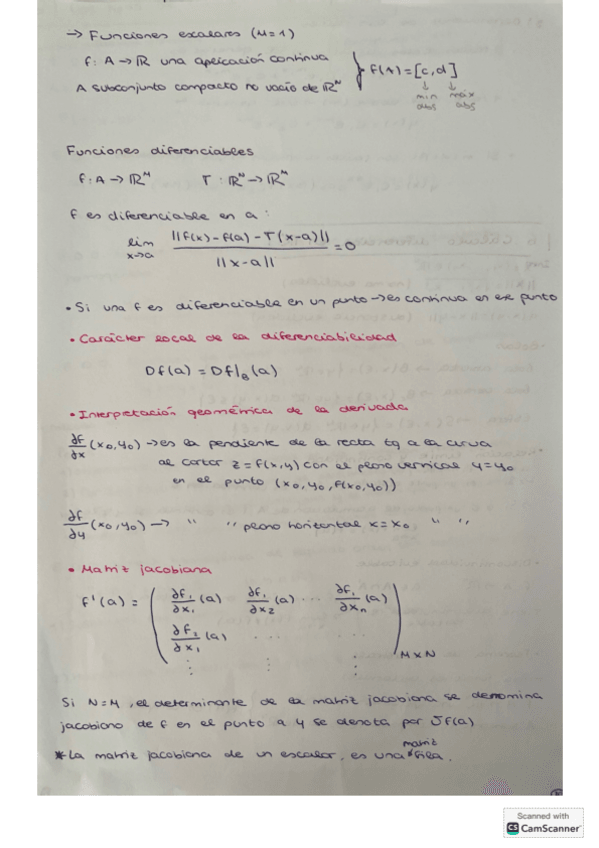 → Funciones escalares (M=1)
f: A → ℝ una aplicación continua
A subconjunto compacto no vacío de ℝᴺ
} f(A) = [c,d]
↓ ↓
min máx
abs abs
Funciones diferenciables
f: A → ℝᴹ T: ℝᴺ → ℝᴹ
f es diferenciable en a:
lim x→a ||f(x) - f(a) - T(x-a)|| / ||x-a|| = 0
• Si una f es diferenciable en un punto → es continua en ese punto
• Carácter local de la diferenciabilidad
Df(a) = Df|_B(a)
• Interpretación geométrica de la derivada
∂f/∂x (x₀,y₀) → es la pendiente de la recta tg a la curva
al cortar z = f(x,y) con el plano vertical y = y₀
en el punto (x₀, y₀, f(x₀,y₀))
∂f/∂y (x₀,y₀) → " " plano horizontal x = x₀ " "
• Matriz jacobiana
f'(a) = ( ∂f₁/∂x₁ (a) ∂f₁/∂x₂ (a) ··· ∂f₁/∂xₙ (a)
∂f₂/∂x₁ (a) ... ...
⋮ ⋮ ⋮ ) M×N
Si N=M, el determinante de la matriz jacobiana se denomina
jacobiano de f en el punto a y se denota por Jf(a)
* La matriz jacobiana de un escalar, es una *matriz fila.
Scanned with
CS CamScanner